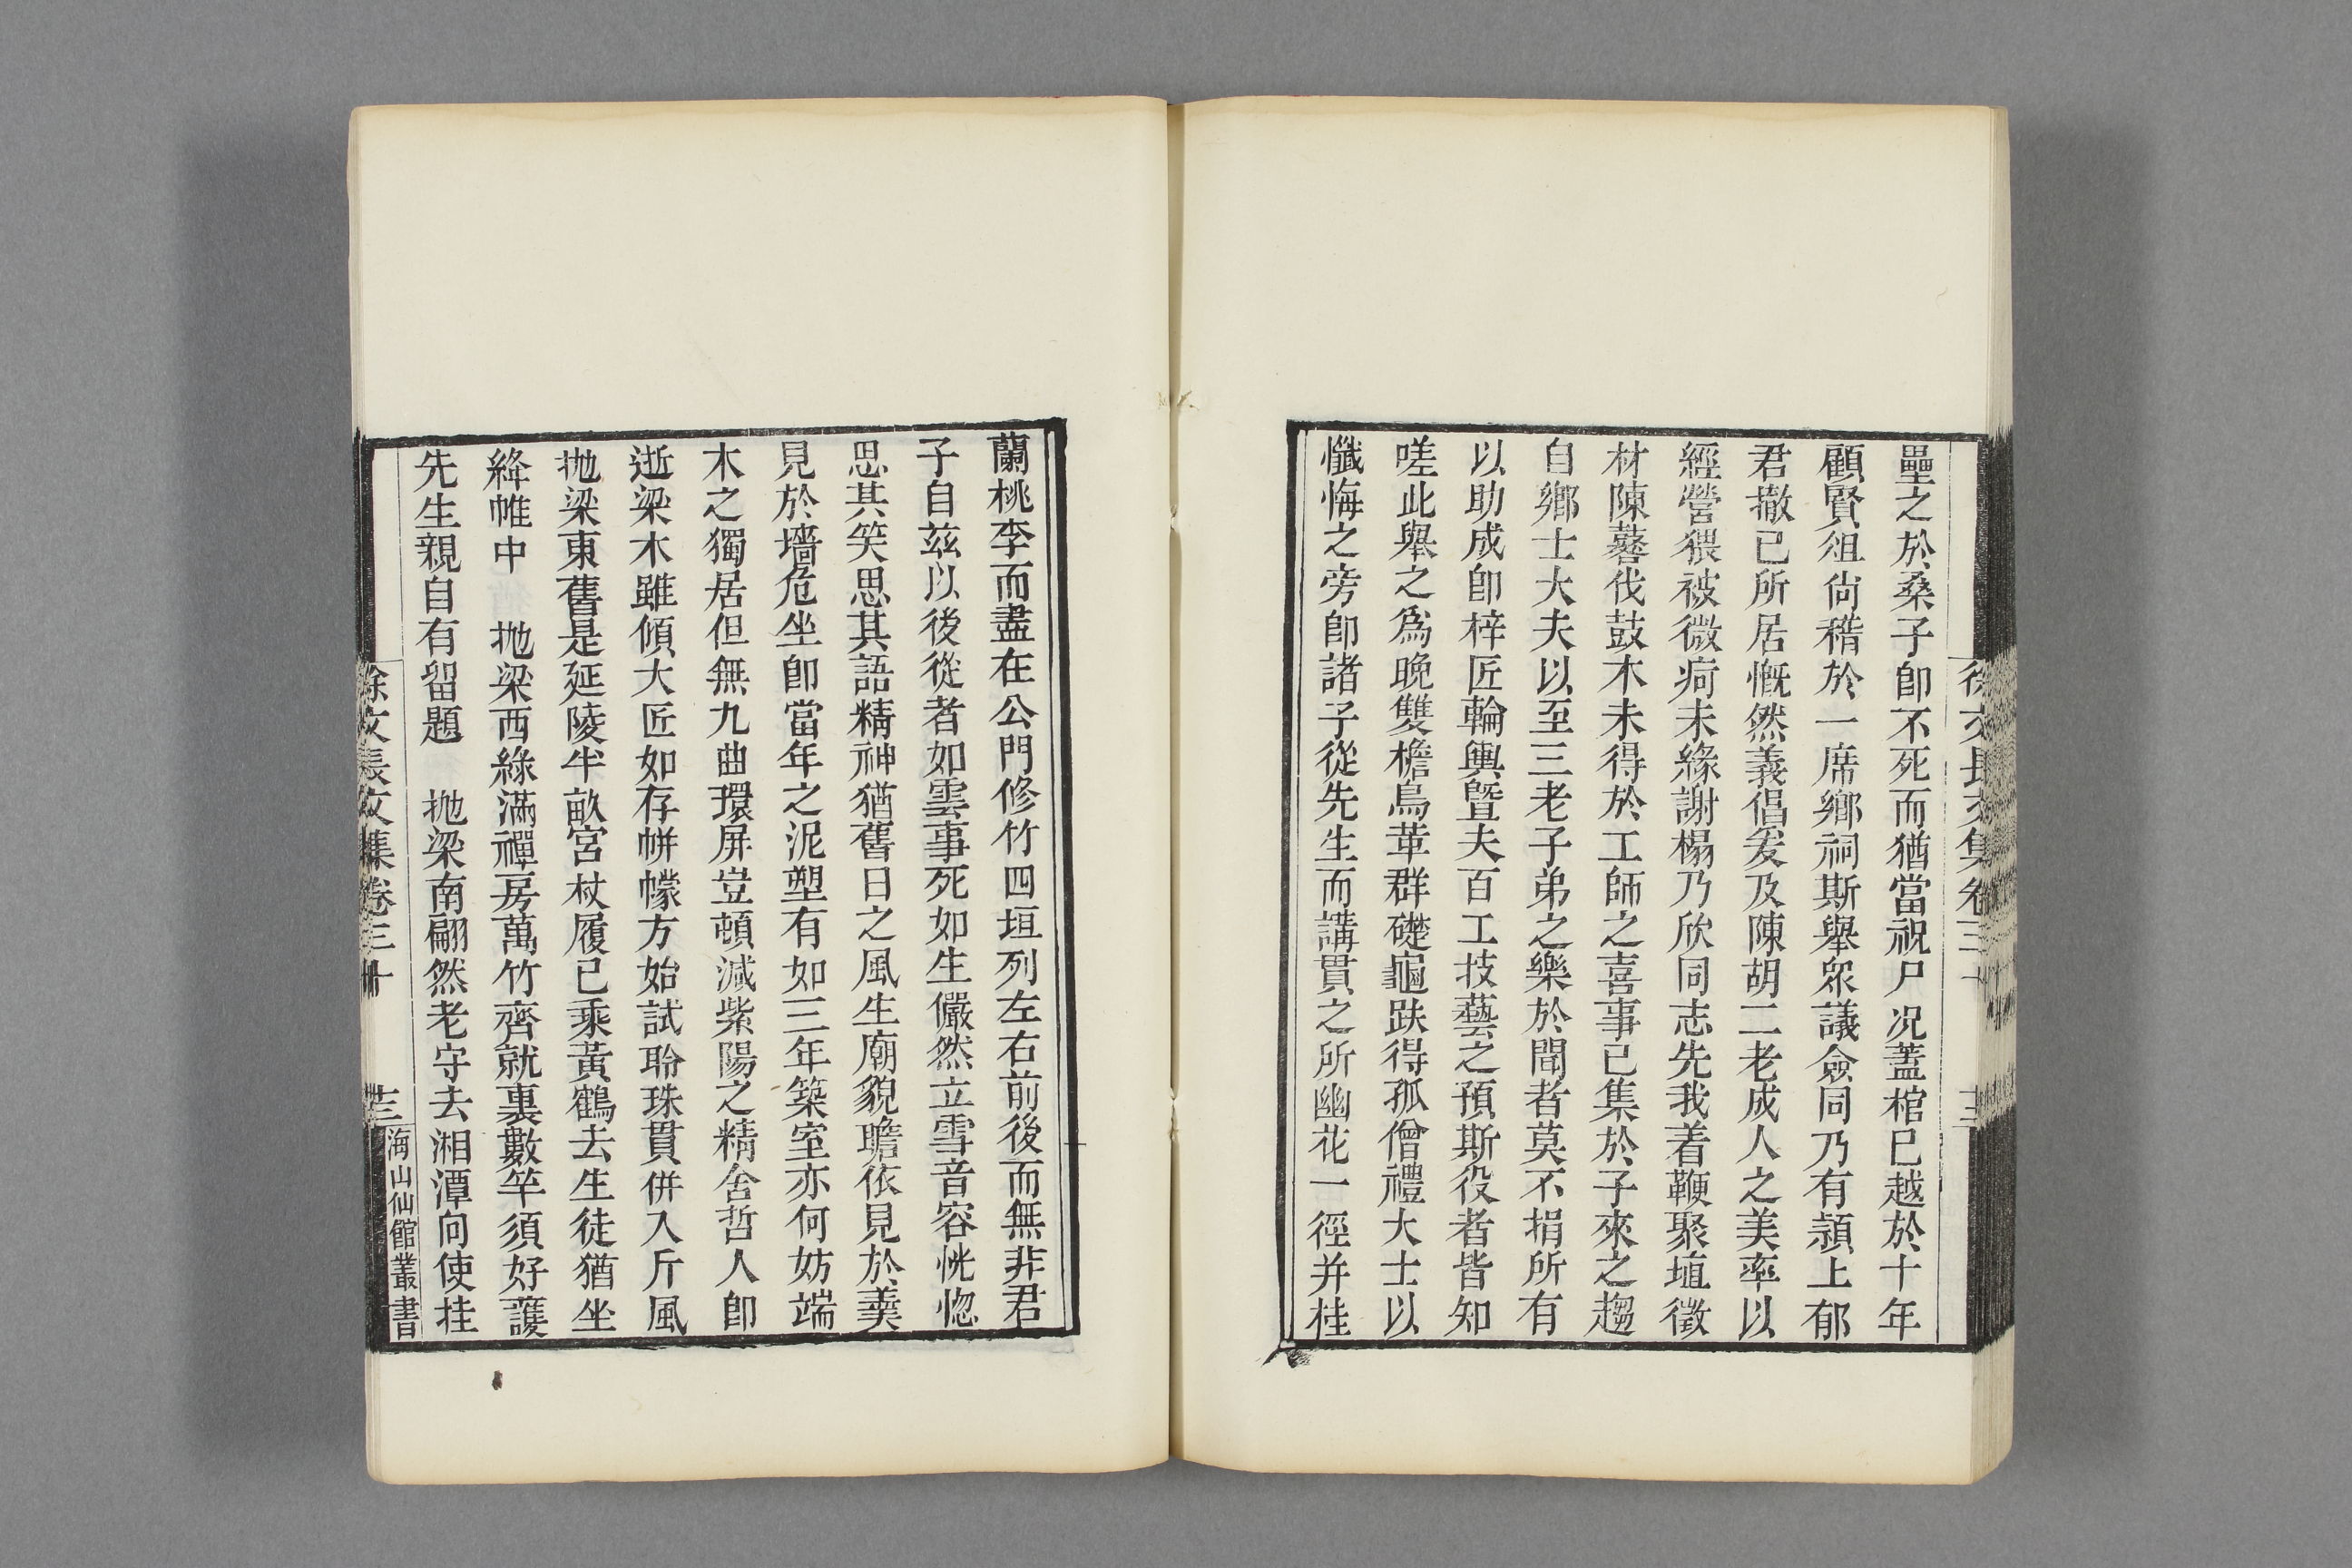 壘之於桑子卽不死而猶當祝尸况蓋棺已越於十年
顧賢俎尙稽於一席鄉祠斯舉衆議僉同乃有潁上郁
君撤已所居慨然義倡爰及陳胡二老成人之美率以
經營猥被微疴未緣謝榻乃欣同志先我着鞭聚埴徵
材陳鼛伐鼓木未得於工師之喜事已集於子來之趨
自鄉士大夫以至三老子弟之樂於聞者莫不捐所有
以助成卽梓匠輪輿曁夫百工技藝之預斯役者皆知
嗟此舉之爲晚雙檐鳥革群礎龜趺得孤僧禮大士以
懺悔之旁卽諸子從先生而講貫之所幽花一徑并桂
蘭桃李而盡在公門修竹四垣列左右前後而無非君
子自茲以後從者如雲事死如生儼然立雪音容恍惚
思其笑思其語精神猶舊日之風生廟貌瞻依見於羹
見於墻危坐卽當年之泥塑有如三年築室亦何妨端
木之獨居但無九曲環屏豈頓減紫陽之精舍哲人卽
逝梁木雖傾大匠如存帡幪方始試聆珠貫併入斤風
抛梁東舊是延陵半畝宮杖履已乘黃鶴去生徒猶坐
絳帷中　抛梁西綠滿禪房萬竹齊就裏數竿須好護
先生親自有留題　抛梁南翩然老守去湘潭向使挂
徐文長文集卷三十
十三
海山仙館叢書